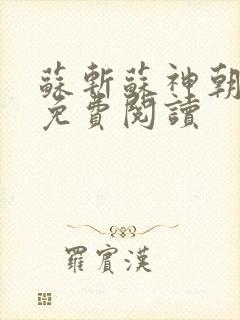 蘇斬蘇神朝
免費閱讀
羅賓漢